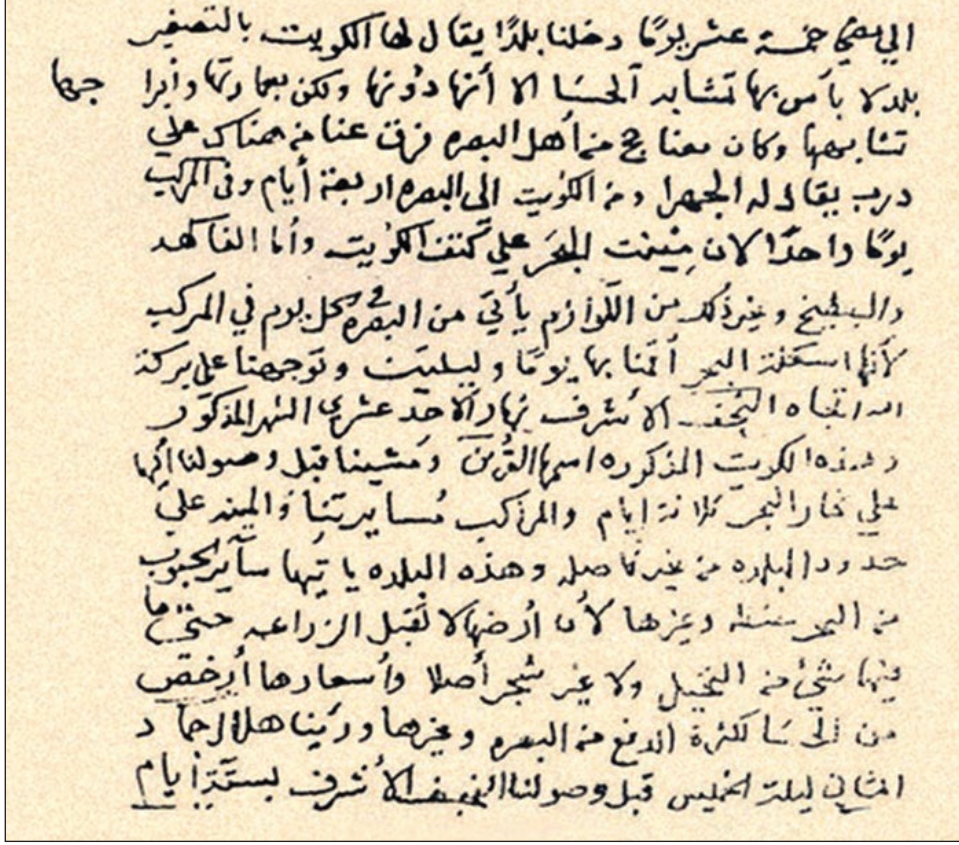 الي مضي خمسة عشر يومًا دخلنا بلدًا يقال لها الكويت بالتصغير
بلد لا بأس بها تشابه الحسا الا أنها دونها ولكن بعمارتها وابرا جها
تشابهها وكان معنا حج من أهل البصره فرق عنا من هناك علي
درب يقال له الجهرا ومن الكويت الى البصره اربعة أيام وفي المركب
يومًا واحدًا لان مينت البحر علي كتف الكويت وأما الفاكهه
والبطيخ وغير ذلك من اللوازم يأتي من البصره في كل يوم في المركب
لأنها اسكلة البحر أقمنا بها يومًا وليلتين وتوجهنا علي بركة
الله اتجاه النجف الأشرف نهار الاحد عشر من الشهر المذكور
وهذه الكويت المذكوره اسمها القرين ومشينا قبل وصولنا إليها
علي كنار البحر ثلاثة ايام والمراكب مسايرتنا والمينه علي
حدود البلده من غير فاصله وهذه البلده ياتيها سائر الحبوب
من البحر حنطه وغيرها لأن أرضها لا تقبل الزراعه حتي ما
فيها شيء من النخيل ولا غير شجر أصلا وأسعارها أرخص
من الحسا لكثرة الدفع من البصره وغيرها ورئينا هلال جماد
الثاني ليلة الخميس قبل وصولنا النجف الأشرف بستة أيام